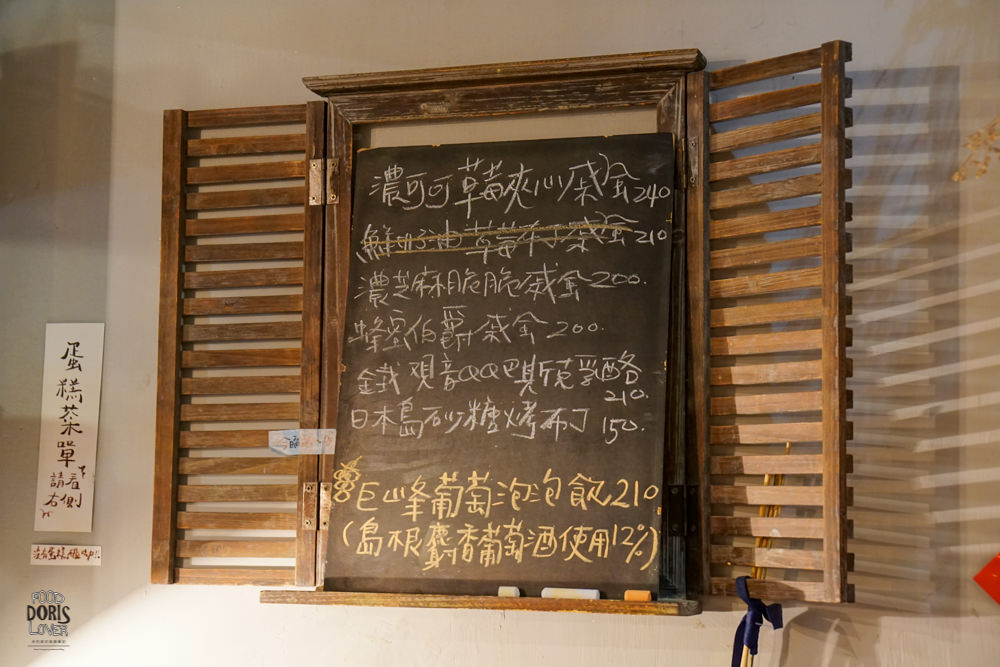 濃可可草莓夾心戚金240
鮮奶油草莓千戚金210
濃芝麻脆脆戚金200.
蜂蜜伯爵戚金200.
鐵观音QQ巴斯克乳酪
210.
日本島砂糖烤布丁150.
巨峰葡萄泡泡飲210
(島根麝香葡萄酒使用12%)
蛋糕菜單
請看
右側
FOOD
DORIS
LOVER